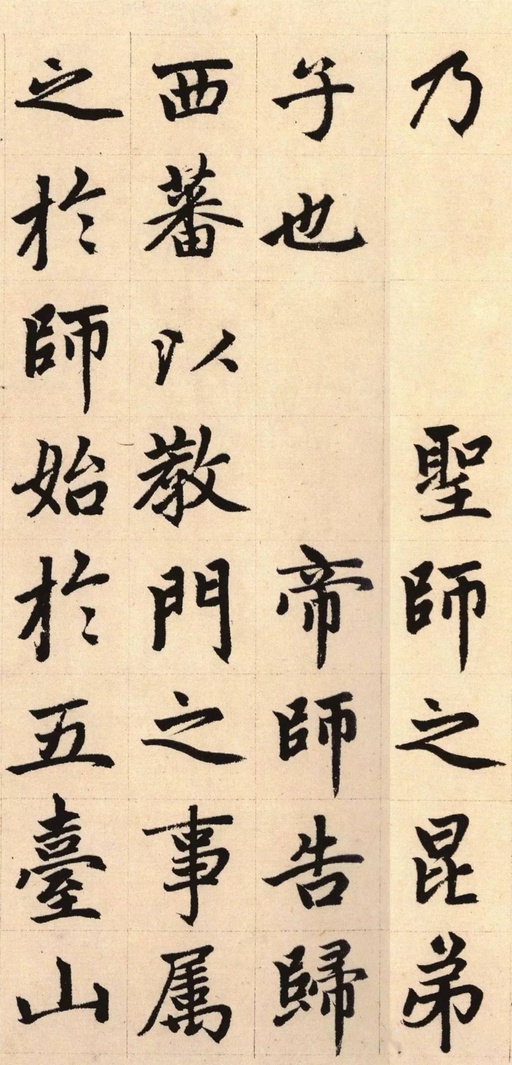 乃　　聖師之昆弟
子也　　帝師告歸
西蕃以教門之事属
之於師始於五臺山